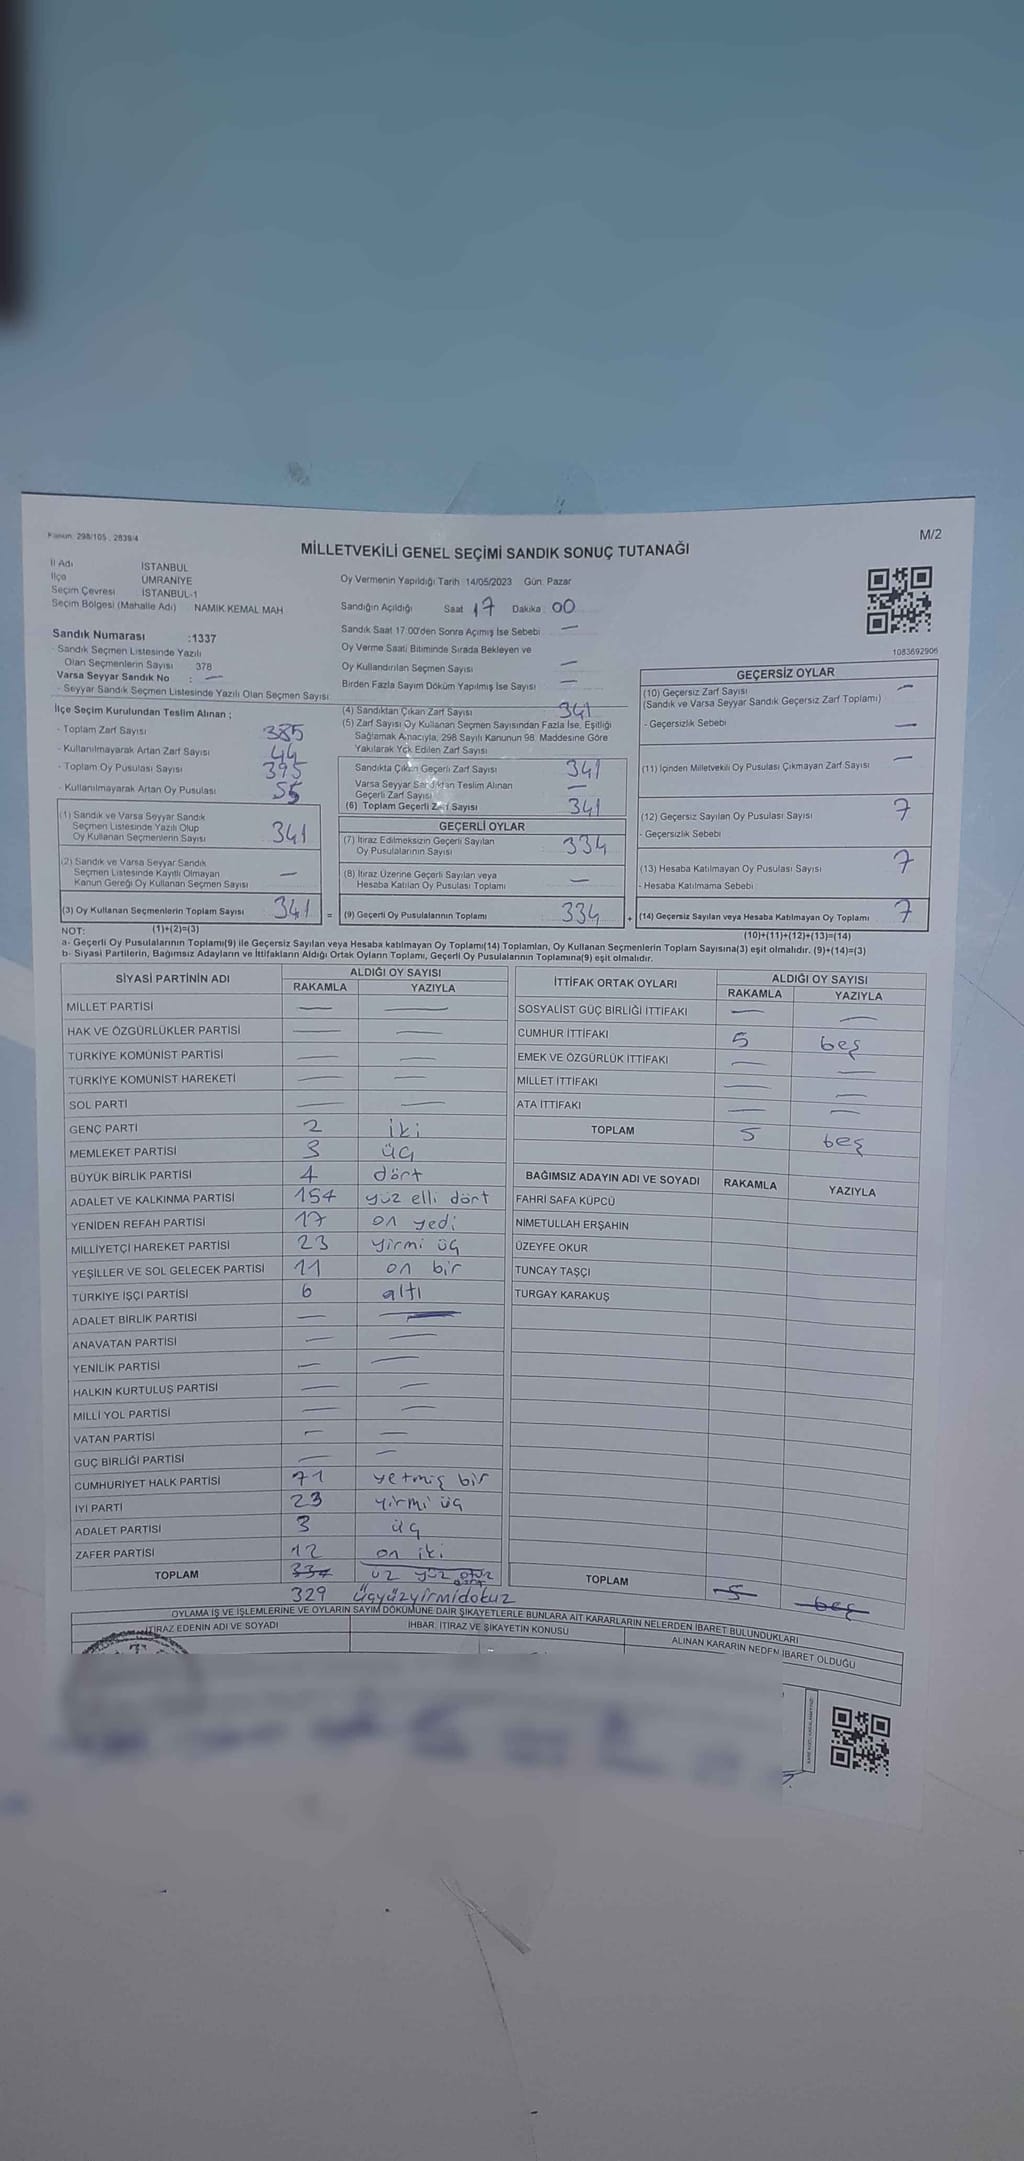 Kanun: 298/105, 2839/4
M/2
MİLLETVEKİLİ GENEL SEÇİMİ SANDIK SONUÇ TUTANAĞI
İl Adı İSTANBUL
İlçe ÜMRANİYE
Seçim Çevresi İSTANBUL-1
Seçim Bölgesi (Mahalle Adı) NAMIK KEMAL MAH
Oy Vermenin Yapıldığı Tarih :14/05/2023 Gün: Pazar
Sandığın Açıldığı Saat 17 Dakika 00
Sandık Saat 17:00'den Sonra Açımış İse Sebebi —
Oy Verme Saati Bitiminde Sırada Bekleyen ve
Oy Kullandırılan Seçmen Sayısı —
Birden Fazla Sayım Döküm Yapılmış İse Sayısı —
1083692906
Sandık Numarası :1337
- Sandık Seçmen Listesinde Yazılı
Olan Seçmenlerin Sayısı 378
Varsa Seyyar Sandık No : —
- Seyyar Sandık Seçmen Listesinde Yazılı Olan Seçmen Sayısı
İlçe Seçim Kurulundan Teslim Alınan ;
- Toplam Zarf Sayısı 385
- Kullanılmayarak Artan Zarf Sayısı 44
- Toplam Oy Pusulası Sayısı 395
- Kullanılmayarak Artan Oy Pusulası 55
(1) Sandık ve Varsa Seyyar Sandık
Seçmen Listesinde Yazılı Olup
Oy Kullanan Seçmenlerin Sayısı 341
(2) Sandık ve Varsa Seyyar Sandık
Seçmen Listesinde Kayıtlı Olmayan
Kanun Gereği Oy Kullanan Seçmen Sayısı —
(3) Oy Kullanan Seçmenlerin Toplam Sayısı 341 =
(4) Sandıktan Çıkan Zarf Sayısı 341
(5) Zarf Sayısı Oy Kullanan Seçmen Sayısından Fazla İse, Eşitliği
Sağlamak Amacıyla, 298 Sayılı Kanunun 98. Maddesine Göre
Yakılarak Yok Edilen Zarf Sayısı
Sandıkta Çıkan Geçerli Zarf Sayısı 341
Varsa Seyyar Sandıktan Teslim Alınan
Geçerli Zarf Sayısı —
(6) Toplam Geçerli Zarf Sayısı 341
GEÇERLİ OYLAR
(7) İtiraz Edilmeksizin Geçerli Sayılan
Oy Pusulalarının Sayısı 334
(8) İtiraz Üzerine Geçerli Sayılan veya
Hesaba Katılan Oy Pusulası Toplamı —
(9) Geçerli Oy Pusulalarının Toplamı 334 +
GEÇERSİZ OYLAR
(10) Geçersiz Zarf Sayısı —
(Sandık ve Varsa Seyyar Sandık Geçersiz Zarf Toplamı)
- Geçersizlik Sebebi —
(11) İçinden Milletvekili Oy Pusulası Çıkmayan Zarf Sayısı —
(12) Geçersiz Sayılan Oy Pusulası Sayısı 7
- Geçersizlik Sebebi
(13) Hesaba Katılmayan Oy Pusulası Sayısı 7
- Hesaba Katılmama Sebebi
(14) Geçersiz Sayılan veya Hesaba Katılmayan Oy Toplamı 7
NOT: (1)+(2)=(3) (10)+(11)+(12)+(13)=(14)
a- Geçerli Oy Pusulalarının Toplamı(9) ile Geçersiz Sayılan veya Hesaba katılmayan Oy Toplamı(14) Toplamları, Oy Kullanan Seçmenlerin Toplam Sayısına(3) eşit olmalıdır. (9)+(14)=(3)
b- Siyasi Partilerin, Bağımsız Adayların ve İttifakların Aldığı Ortak Oyların Toplamı, Geçerli Oy Pusulalarının Toplamına(9) eşit olmalıdır.
SİYASİ PARTİNİN ADI ALDIĞI OY SAYISI
RAKAMLA YAZIYLA
MİLLET PARTİSİ — —
HAK VE ÖZGÜRLÜKLER PARTİSİ — —
TÜRKİYE KOMÜNİST PARTİSİ — —
TÜRKİYE KOMÜNİST HAREKETİ — —
SOL PARTİ — —
GENÇ PARTİ 2 iki
MEMLEKET PARTİSİ 3 üç
BÜYÜK BİRLİK PARTİSİ 4 dört
ADALET VE KALKINMA PARTİSİ 154 yüz elli dört
YENİDEN REFAH PARTİSİ 17 on yedi
MİLLİYETÇİ HAREKET PARTİSİ 23 yirmi üç
YEŞİLLER VE SOL GELECEK PARTİSİ 11 on bir
TÜRKİYE İŞÇİ PARTİSİ 6 altı
ADALET BİRLİK PARTİSİ — —
ANAVATAN PARTİSİ — —
YENİLİK PARTİSİ — —
HALKIN KURTULUŞ PARTİSİ — —
MİLLİ YOL PARTİSİ — —
VATAN PARTİSİ — —
GÜÇ BİRLİĞİ PARTİSİ — —
CUMHURİYET HALK PARTİSİ 71 yetmiş bir
İYİ PARTİ 23 yirmi üç
ADALET PARTİSİ 3 üç
ZAFER PARTİSİ 12 on iki
TOPLAM 334 üz yüz otuz
329 üçyüzyirmidokuz
İTTİFAK ORTAK OYLARI ALDIĞI OY SAYISI
RAKAMLA YAZIYLA
SOSYALİST GÜÇ BİRLİĞİ İTTİFAKI — —
CUMHUR İTTİFAKI 5 beş
EMEK VE ÖZGÜRLÜK İTTİFAKI — —
MİLLET İTTİFAKI — —
ATA İTTİFAKI — —
TOPLAM 5 beş
BAĞIMSIZ ADAYIN ADI VE SOYADI RAKAMLA YAZIYLA
FAHRİ SAFA KÜPCÜ
NİMETULLAH ERŞAHİN
ÜZEYFE OKUR
TUNCAY TAŞÇI
TURGAY KARAKUŞ
TOPLAM 5 beş
OYLAMA İŞ VE İŞLEMLERİNE VE OYLARIN SAYIM DÖKÜMÜNE DAİR ŞİKAYETLERLE BUNLARA AİT KARARLARIN NELERDEN İBARET BULUNDUKLARI
İTİRAZ EDENİN ADI VE SOYADI İHBAR, İTİRAZ VE ŞİKAYETİN KONUSU ALINAN KARARIN NEDEN İBARET OLDUĞU